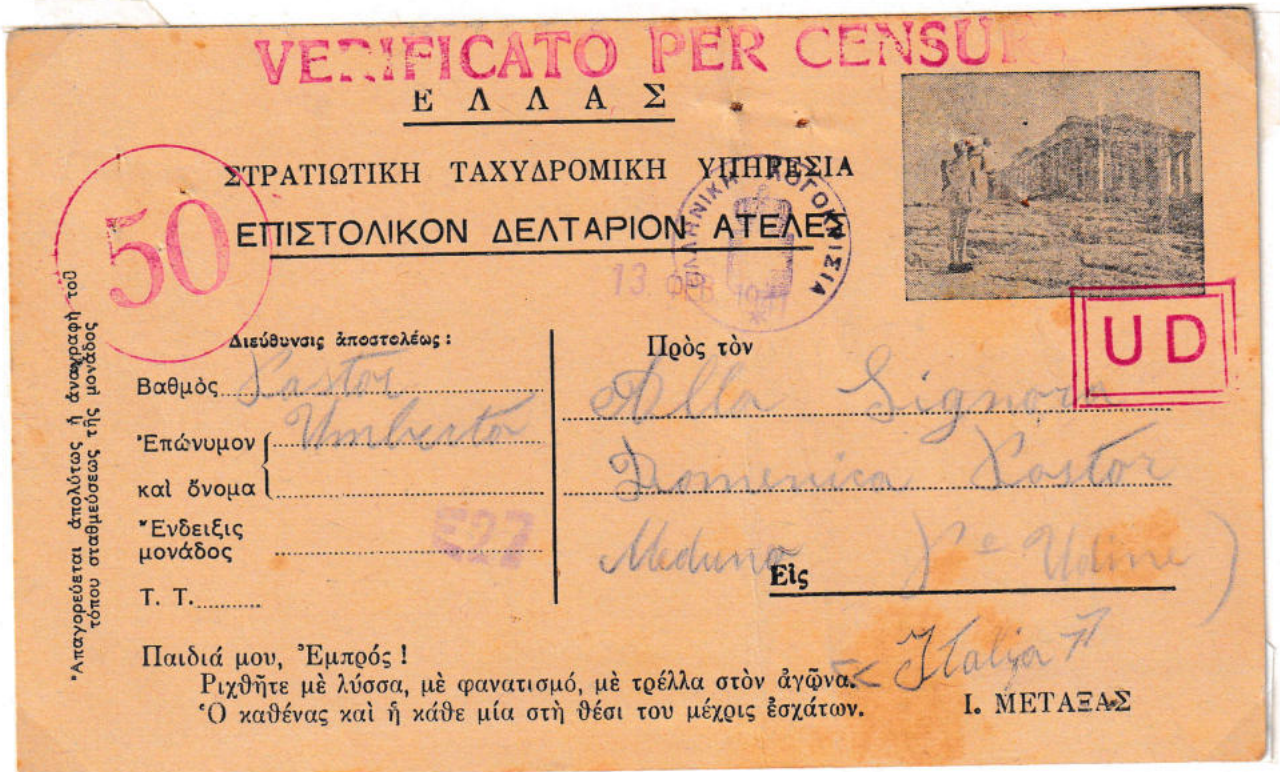 VERIFICATO PER CENSURA
ΕΛΛΑΣ
ΣΤΡΑΤΙΩΤΙΚΗ ΤΑΧΥΔΡΟΜΙΚΗ ΥΠΗΡΕΣΙΑ
ΕΠΙΣΤΟΛΙΚΟΝ ΔΕΛΤΑΡΙΟΝ ΑΤΕΛΕΣ
50
ΕΛΛΗΝΙΚΗ ΛΟΓΟΚΡΙΣΙΑ
13 ΦΕΒ 1941
UD
Ἀπαγορεύεται ἀπολύτως ἡ ἀναγραφὴ τοῦ
τόπου σταθμεύσεως τῆς μονάδος
Διεύθυνσις ἀποστολέως:
Βαθμὸς
Umberto
Ἐπώνυμον
καὶ ὄνομα
Ἔνδειξις
μονάδος
Τ. Τ.
Πρὸς τὸν
Alla Signora
Domenica
Meduno
Εἰς
Udine)
Italia
Παιδιά μου, Ἐμπρός!
Ριχθῆτε μὲ λύσσα, μὲ φανατισμό, μὲ τρέλλα στὸν ἀγῶνα.
Ὁ καθένας καὶ ἡ κάθε μία στὴ θέσι του μέχρις ἐσχάτων.
Ι. ΜΕΤΑΞΑΣ